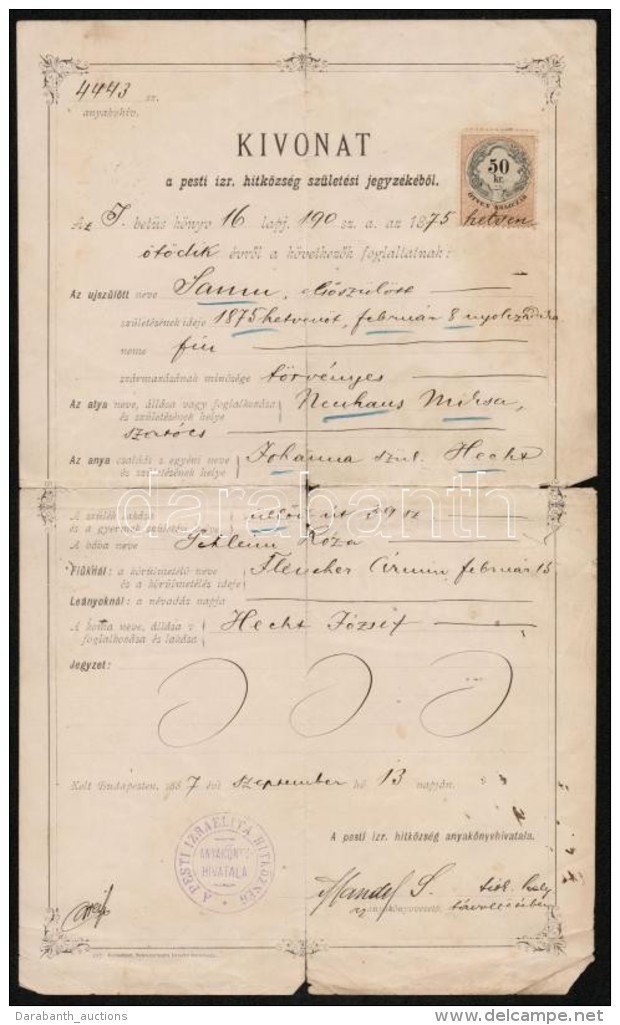 4443 sz.
anyakvkiv.
KIVONAT
a pesti izr. hitközség születési jegyzékéből.
50
kr.
Az I. betüs könyv 16 lapj. 190 sz. a. az 1875 hetven
ötödik évről a következők foglaltatnak:
Az ujszülött neve Samu, elsőszülött
születésének ideje 1875 hetvenöt, február 8 nyolczadika
neme fiu
származásának minősége törvényes
Az atya neve, állása vagy foglalkozása
és születésének helye Neuhaus Miksa,
szatócs
Az anya családi s egyéni neve
és születésének helye Johanna szül. Hecht
A szülék lakása
és a gyermek születési helye üllői út 39 sz
A bába neve Róza
Fiúknál: a körülmetélő neve
és a körülmetélés ideje Fleischer február 15
Leányoknál: a névadás napja
A koma neve, állása v.
foglalkozása és lakása Hecht József
Jegyzet:
Kelt Budapesten, 1887 évi szeptember hó 13 napján.
A pesti izr. hitközség anyakönyvhivatala.
A PESTI IZRAELITA HITKÖZSÉG
ANYAKÖNYV
HIVATALA
Mandl S.
anyakönyvvezető
távollétében
darabanth
Darabanth_auctions
www.delcampe.net